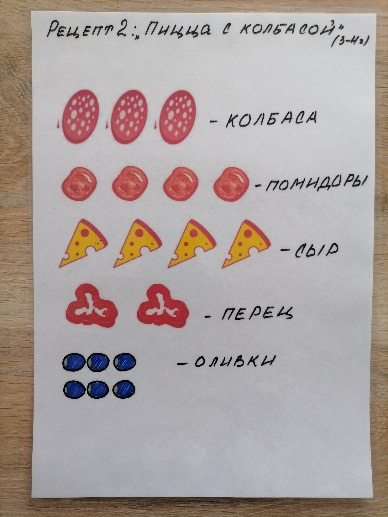 Рецепт 2: „Пицца с колбасой"
(3-4г)
- колбаса
- помидоры
- сыр
- перец
- оливки